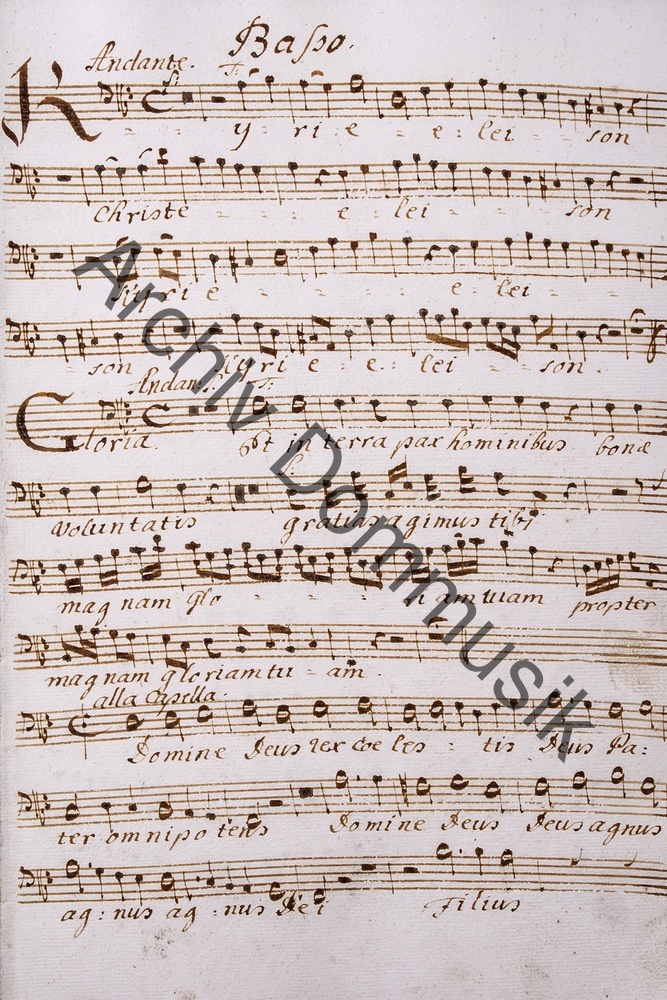 Basso.
Andante. Si T:
Ky - ri - e - e - lei - son
Christe - - - e - lei - - - son
Kyrie - - - - e - lei -
son Kyri - e - e - lei - son.
Andan: T:
Gloria. Et in terra pax hominibus bonæ
voluntatis gratias agimus tibi
magnam glo - - - - ri am tuam propter
magnam gloriam tu - am.
alla Capella.
Domine Deus rex coeles - tis Deus Pa:
ter omnipotens Domine Deus Deus agnus
ag: nus ag: nus Dei Filius
Archiv Dommusik